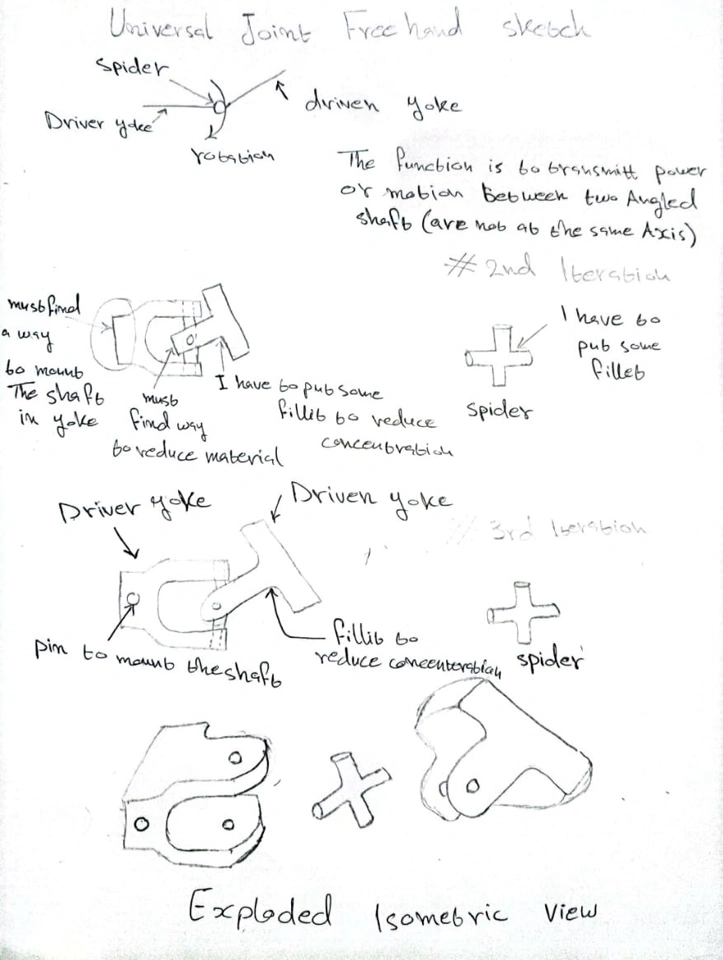 Universal Joint Freehand sketch
Spider
driven yoke
Driver yoke
rotation
The function is to transmitt power
or motion Between two Angled
shaft (are not at the same Axis)
# 2nd Iteration
must find
a way
to mount
The shaft
in yoke
must
find way
to reduce material
I have to put some
fillit to reduce
concentration
I have to
put some
fillet
spider
Driver yoke
Driven yoke
# 3rd Iteration
pin to mount the shaft
fillit to
reduce concenteration
spider
Exploded Isometric view